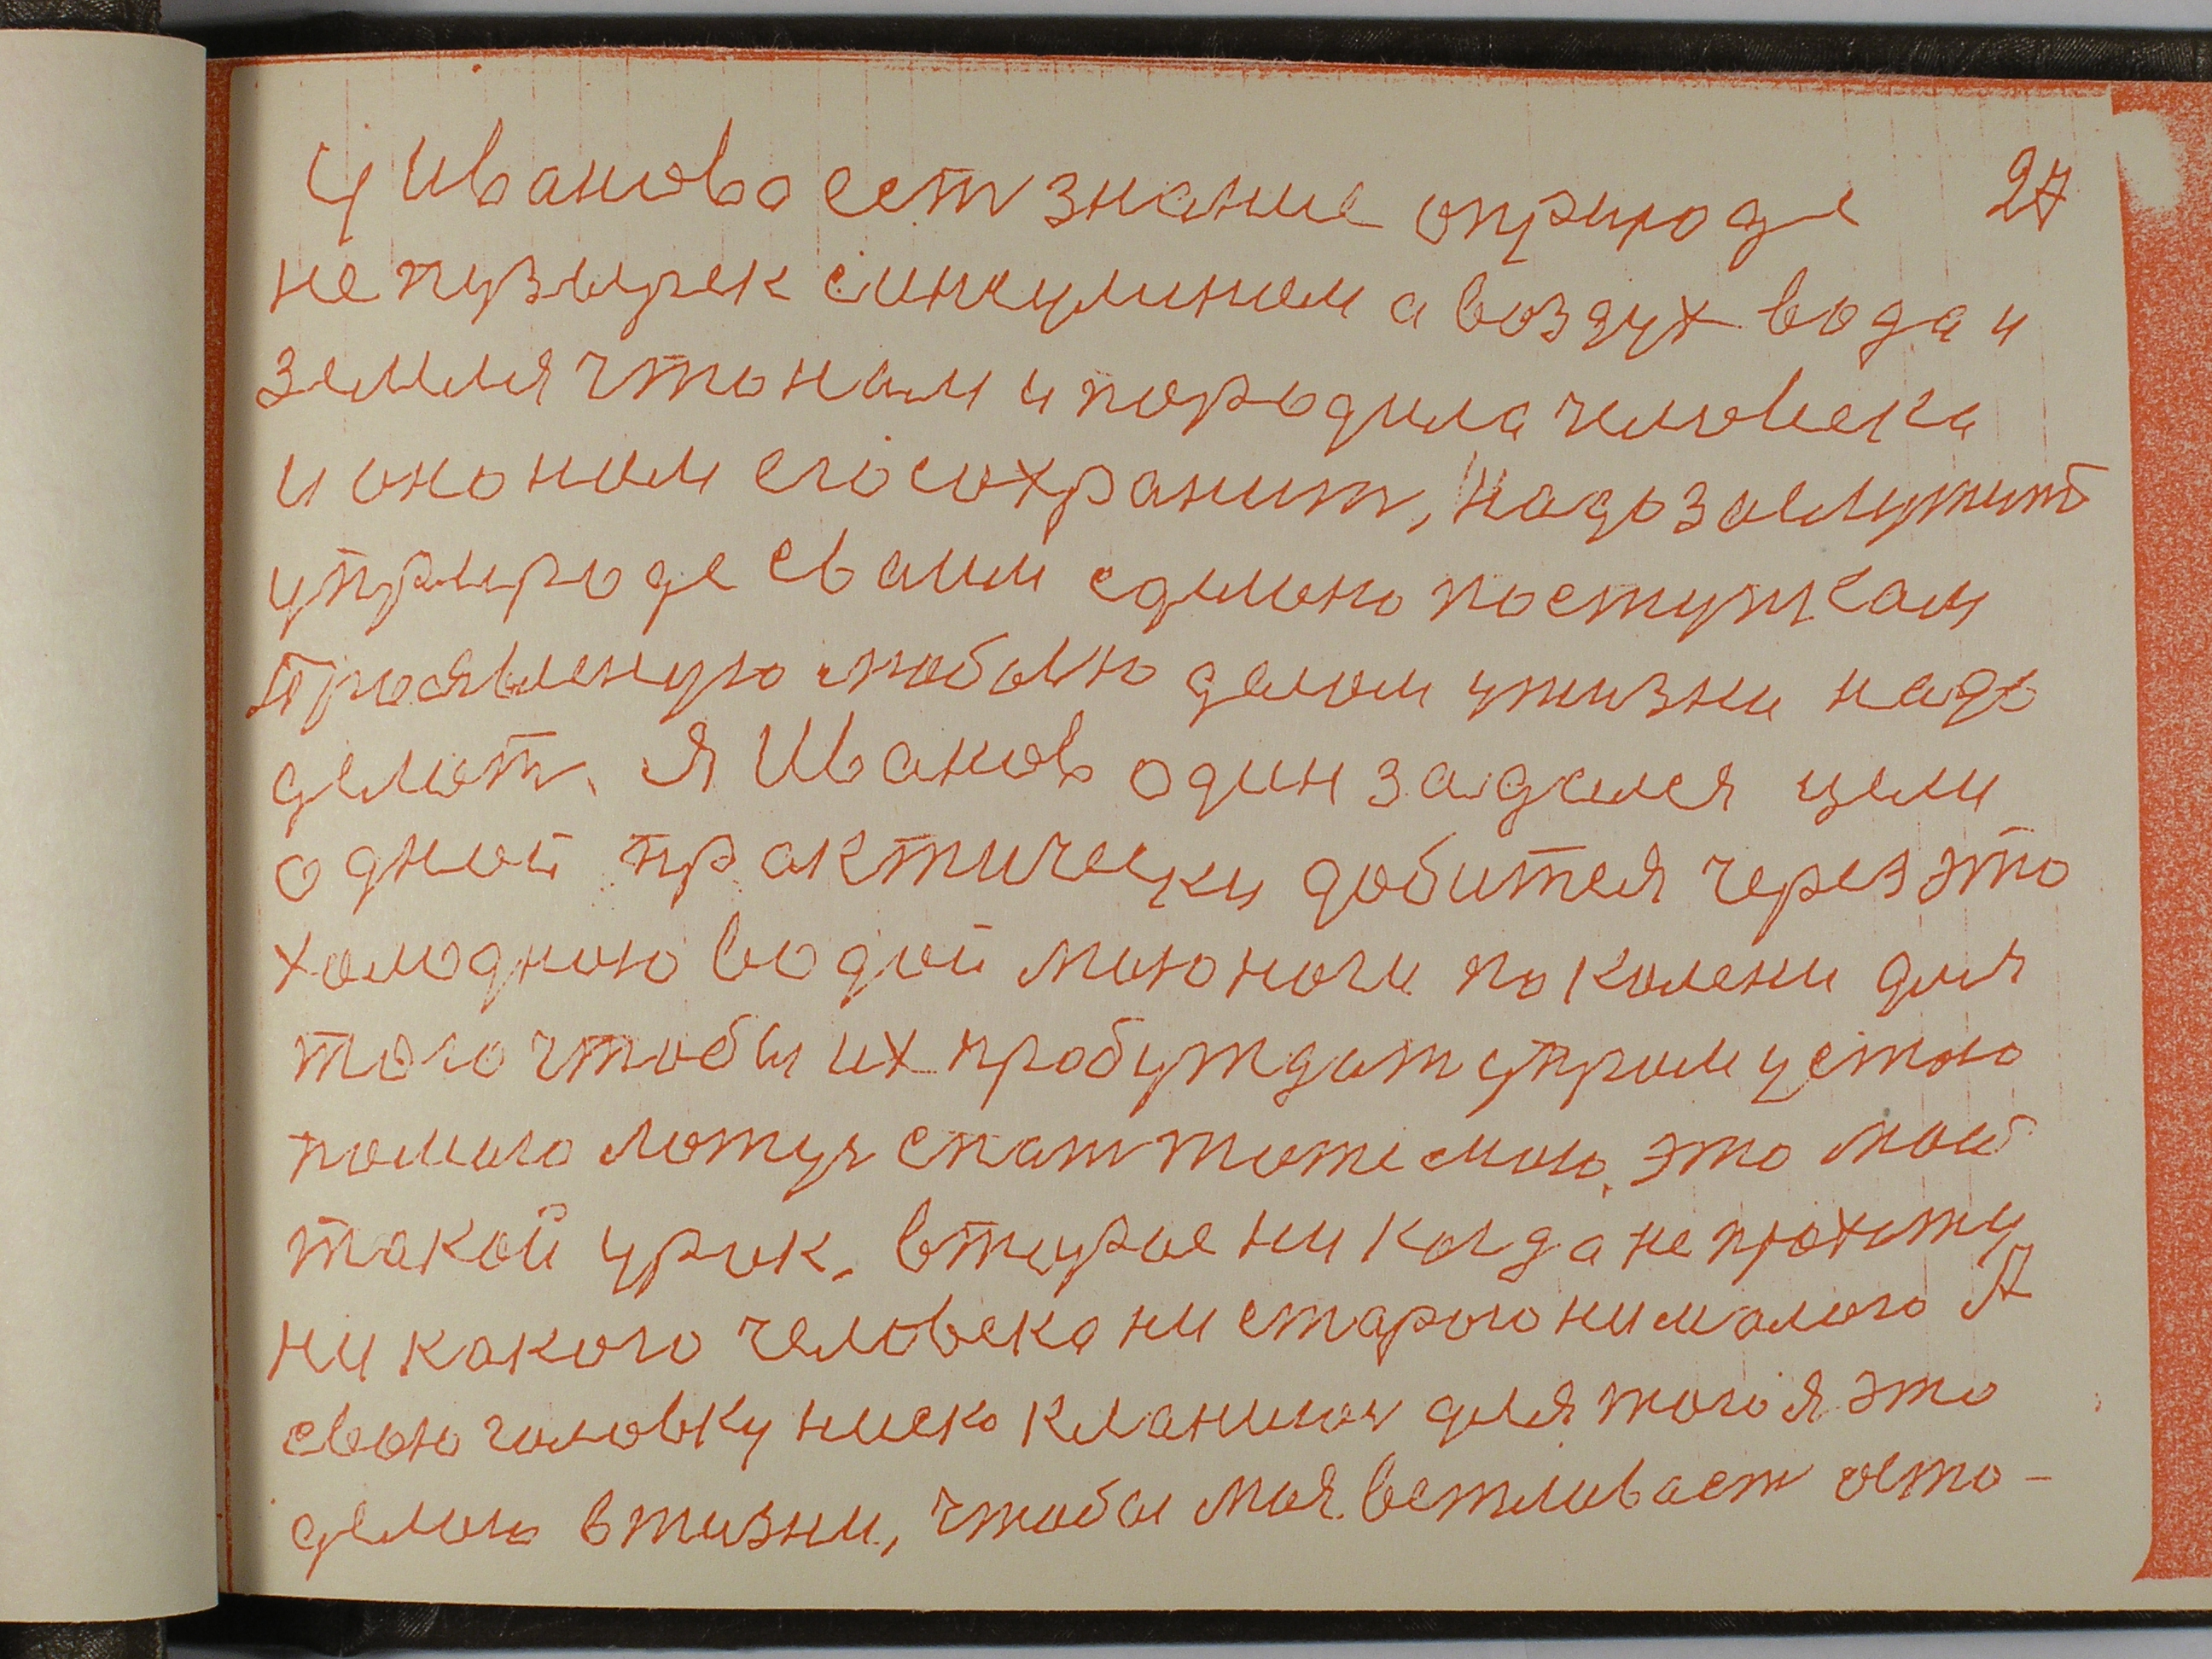 у Иванова ест знание о природе 27
не пузырек синкулином а воздух вода и
земля что нам и породила человека
и оно нам его сохранит, надо заслужит
у природе сваим сделоно поступкам
Проявленую любовю делом у жизни надо
делат. я Иванов один задался цели
одной практически добится через это
холодною водой мою ноги по колени для
того чтобы их пробуждат утром устаю
помыю ложуя спат тоже мою. это мой
такой урок, второе ни когда не прохожу
ни какого человека ни старого ни малого я
свою головку ниско кланиюя для того я это
делою в жизни, чтобы моя вежливаст оста-